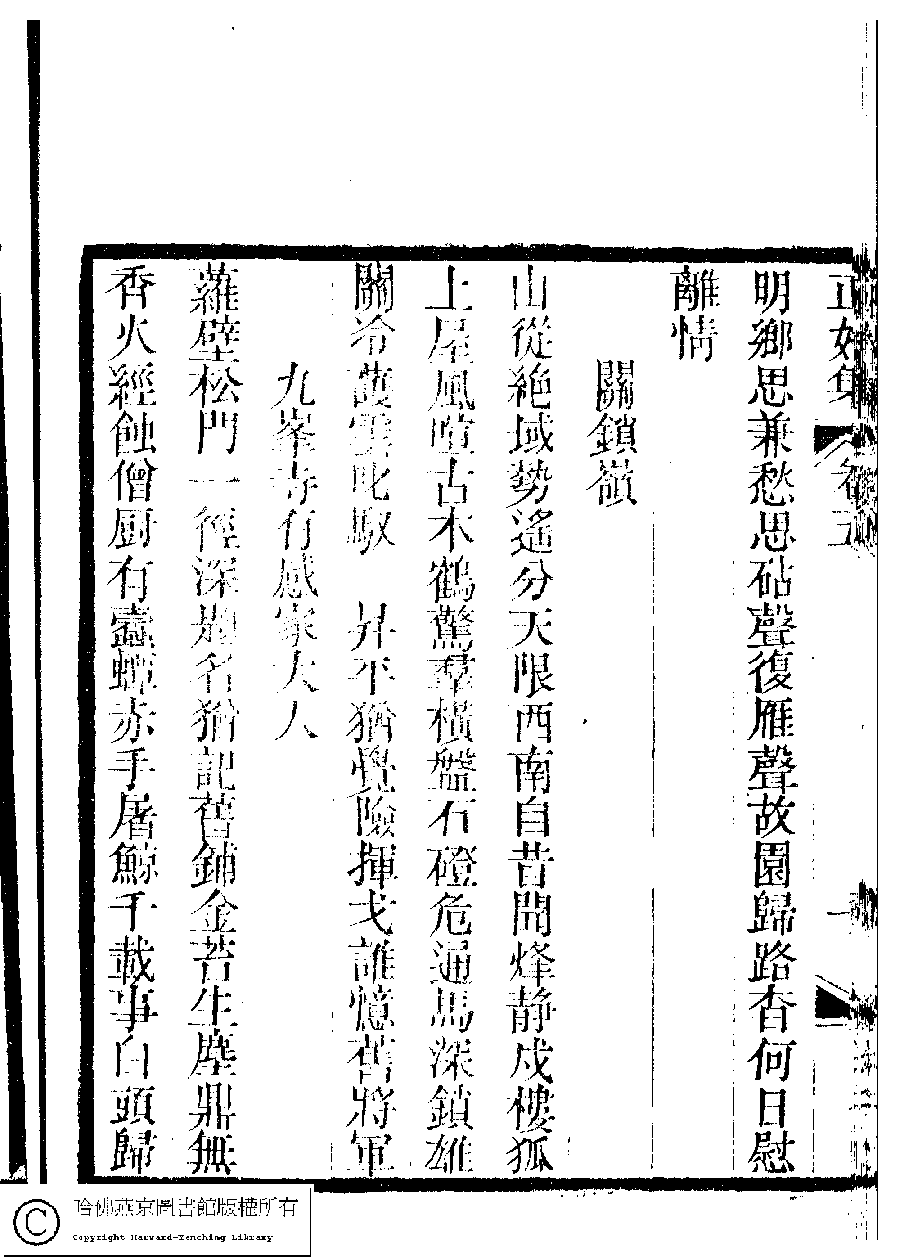 正始集 卷五
明鄉思兼愁思砧聲復雁聲故園歸路杳何日慰
離情
關鎖嶺
山從絕域勢遙分天限西南自昔聞烽靜戍樓狐
上屋風喧古木鶴驚羣橫盤石磴危通馬深鎖雄
關冷護雲叱馭 昇平猶覺險揮戈誰憶舊將軍
九峯寺有感家大人
蘿壁松門一徑深題名猶記舊鋪金苔生塵鼎無
香火經蝕僧厨有蠹蟫赤手屠鯨千載事白頭歸
哈佛燕京圖書館版權所有
Copyright Harvard-Yenching Library